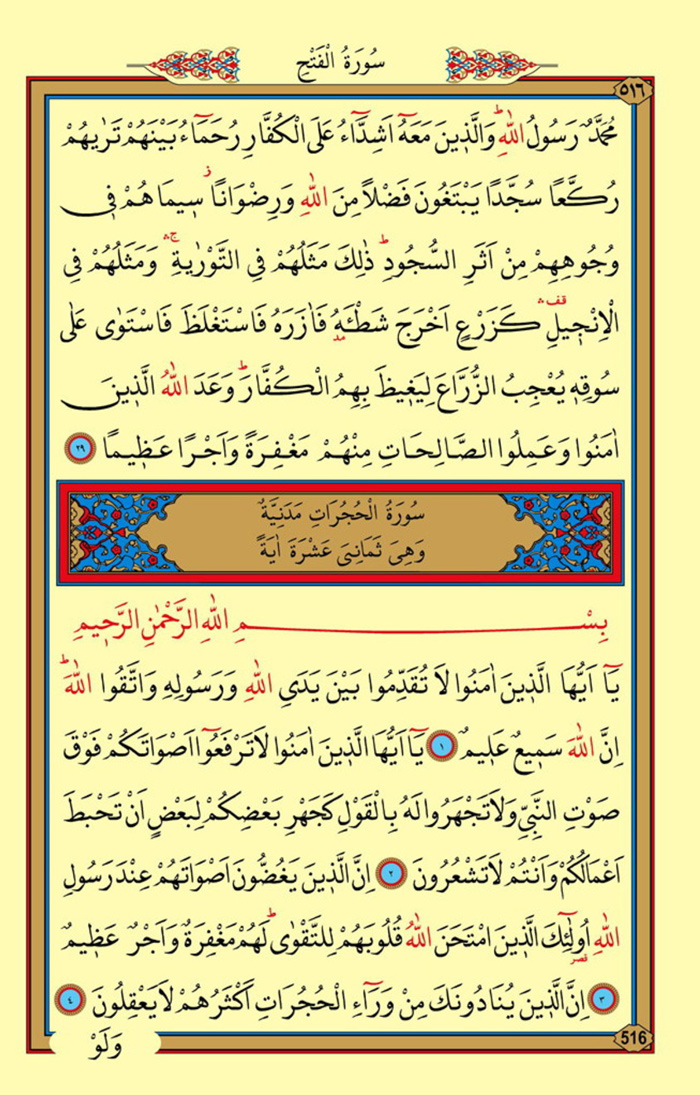 سُورَةُ الْفَتْحِ
٥١٦
مُحَمَّدٌ رَسُولُ اللّٰهِۜ وَالَّذ۪ينَ مَعَهُٓ اَشِدَّٓاءُ عَلَى الْكُفَّارِ رُحَمَٓاءُ بَيْنَهُمْ تَرٰيهُمْ
رُكَّعًا سُجَّدًا يَبْتَغُونَ فَضْلًا مِنَ اللّٰهِ وَرِضْوَانًاۘ س۪يمَاهُمْ ف۪ي
وُجُوهِهِمْ مِنْ اَثَرِ السُّجُودِۜ ذٰلِكَ مَثَلُهُمْ فِي التَّوْرٰيةِۚۛ وَمَثَلُهُمْ فِي
الْاِنْج۪يلِ۠ۛ كَزَرْعٍ اَخْرَجَ شَطْـَٔهُ فَاٰزَرَهُ فَاسْتَغْلَظَ فَاسْتَوٰى عَلٰى
سُوقِه۪ يُعْجِبُ الزُّرَّاعَ لِيَغ۪يظَ بِهِمُ الْكُفَّارَۜ وَعَدَ اللّٰهُ الَّذ۪ينَ
اٰمَنُوا وَعَمِلُوا الصَّالِحَاتِ مِنْهُمْ مَغْفِرَةً وَاَجْرًا عَظ۪يمًا ٢٩
سُورَةُ الْحُجُرَاتِ مَدَنِيَّةٌ
وَهِيَ ثَمَانِيَ عَشْرَةَ اٰيَةً
بِسْمِ اللّٰهِ الرَّحْمٰنِ الرَّح۪يمِ
يَٓا اَيُّهَا الَّذ۪ينَ اٰمَنُوا لَا تُقَدِّمُوا بَيْنَ يَدَيِ اللّٰهِ وَرَسُولِه۪ وَاتَّقُوا اللّٰهَۜ
اِنَّ اللّٰهَ سَم۪يعٌ عَل۪يمٌ ١ يَٓا اَيُّهَا الَّذ۪ينَ اٰمَنُوا لَا تَرْفَعُٓوا اَصْوَاتَكُمْ فَوْقَ
صَوْتِ النَّبِيِّ وَلَا تَجْهَرُوا لَهُ بِالْقَوْلِ كَجَهْرِ بَعْضِكُمْ لِبَعْضٍ اَنْ تَحْبَطَ
اَعْمَالُكُمْ وَاَنْتُمْ لَا تَشْعُرُونَ ٢ اِنَّ الَّذ۪ينَ يَغُضُّونَ اَصْوَاتَهُمْ عِنْدَ رَسُولِ
اللّٰهِ اُو۬لٰٓئِكَ الَّذ۪ينَ امْتَحَنَ اللّٰهُ قُلُوبَهُمْ لِلتَّقْوٰىۜ لَهُمْ مَغْفِرَةٌ وَاَجْرٌ عَظ۪يمٌ
٣ اِنَّ الَّذ۪ينَ يُنَادُونَكَ مِنْ وَرَٓاءِ الْحُجُرَاتِ اَكْثَرُهُمْ لَا يَعْقِلُونَ ٤
516
وَلَوْ